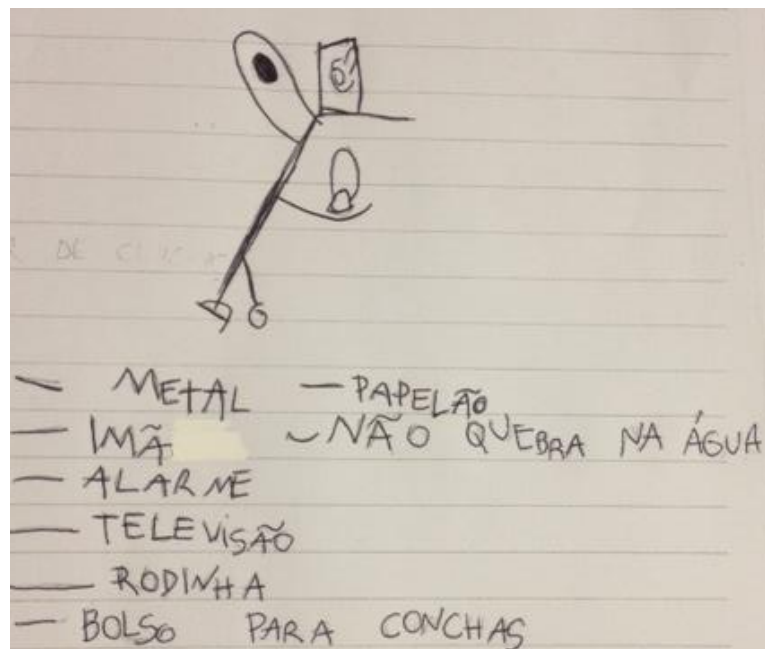 — METAL — PAPELÃO
— IMÃ — NÃO QUEBRA NA ÁGUA
— ALARME
— TELEVISÃO
— RODINHA
— BOLSO PARA CONCHAS